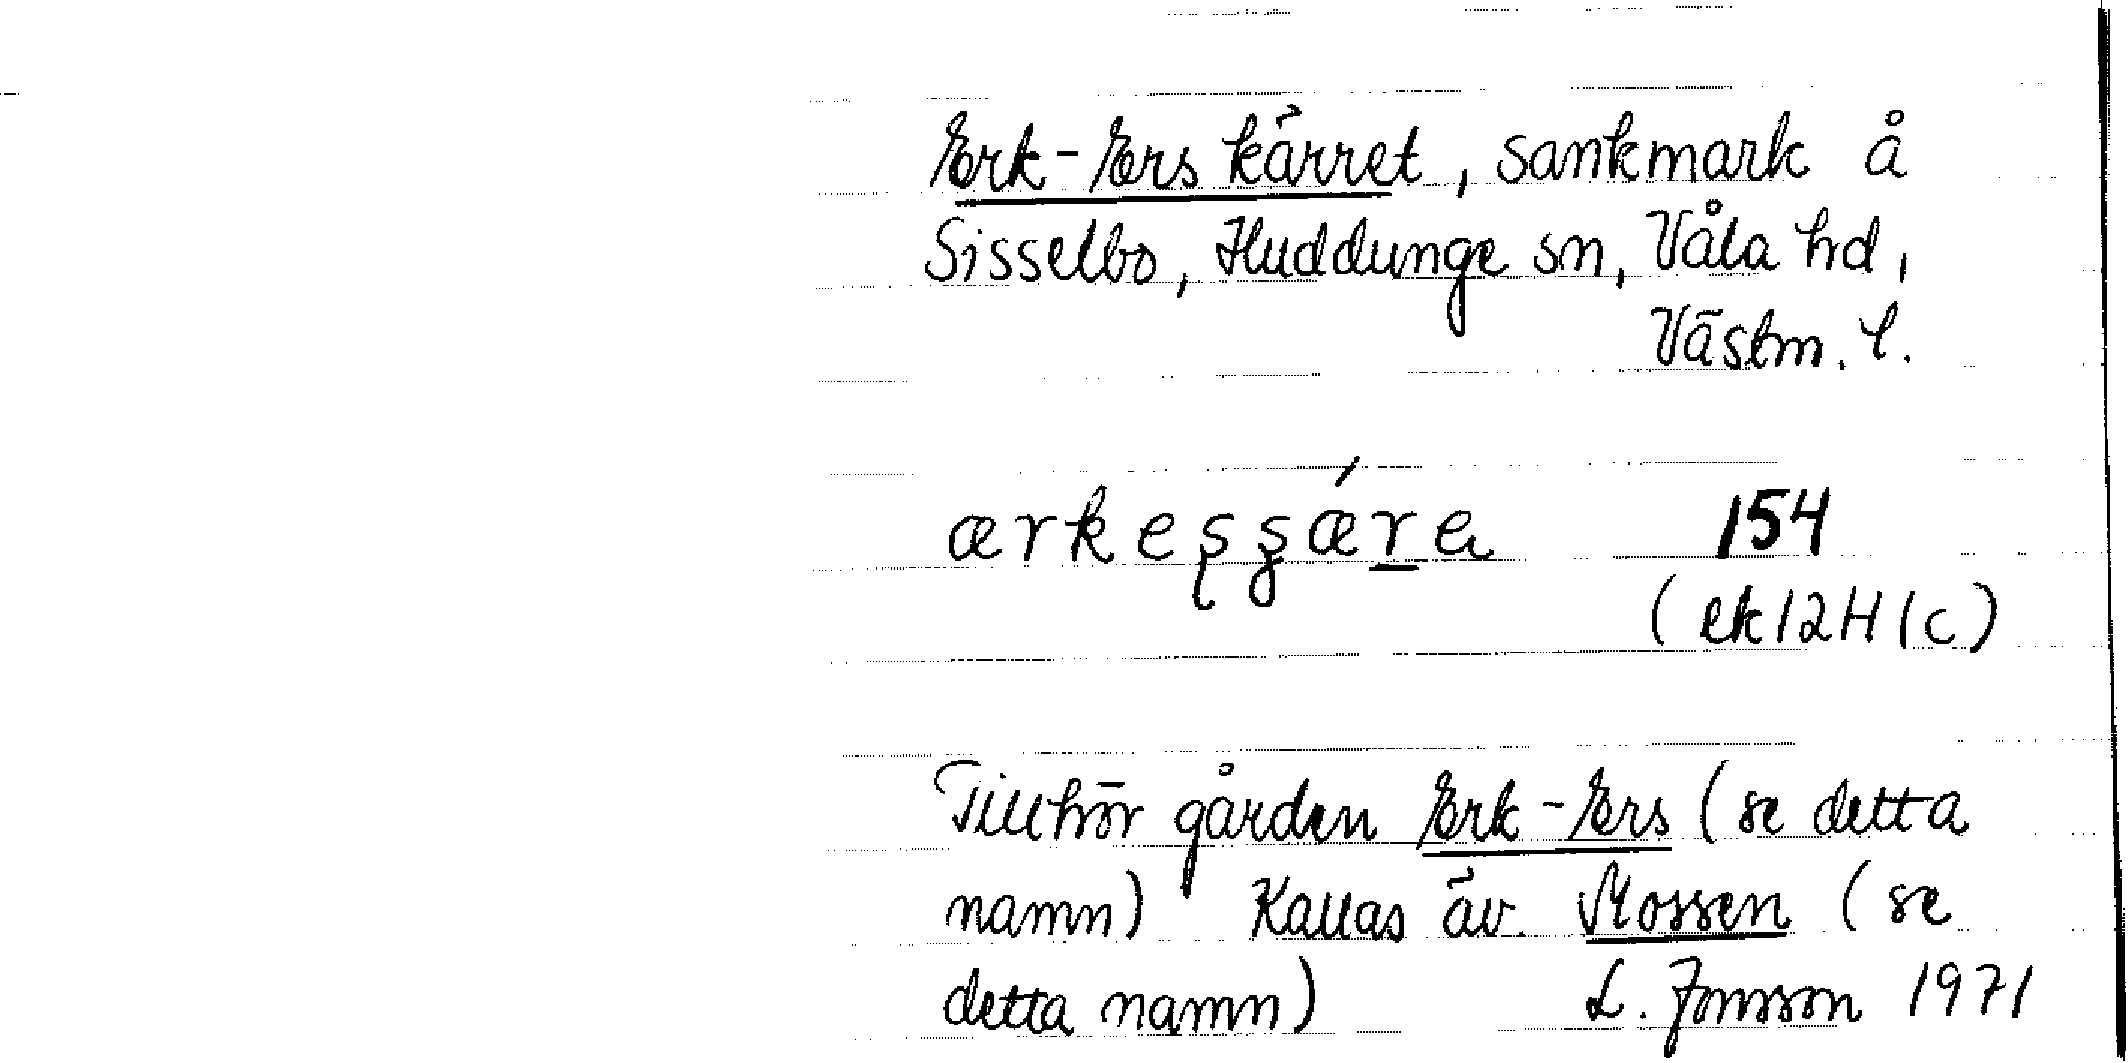 Erk-Ers kärret, sankmark å
Sisselbo, Huddunge sn, Våla hd,
Västm. l.
154
(ek 12H1c)
Tillhör gården Erk-Ers (se detta
namn) Kallas äv. Mossen (se
detta namn) L. Jonsson 1971